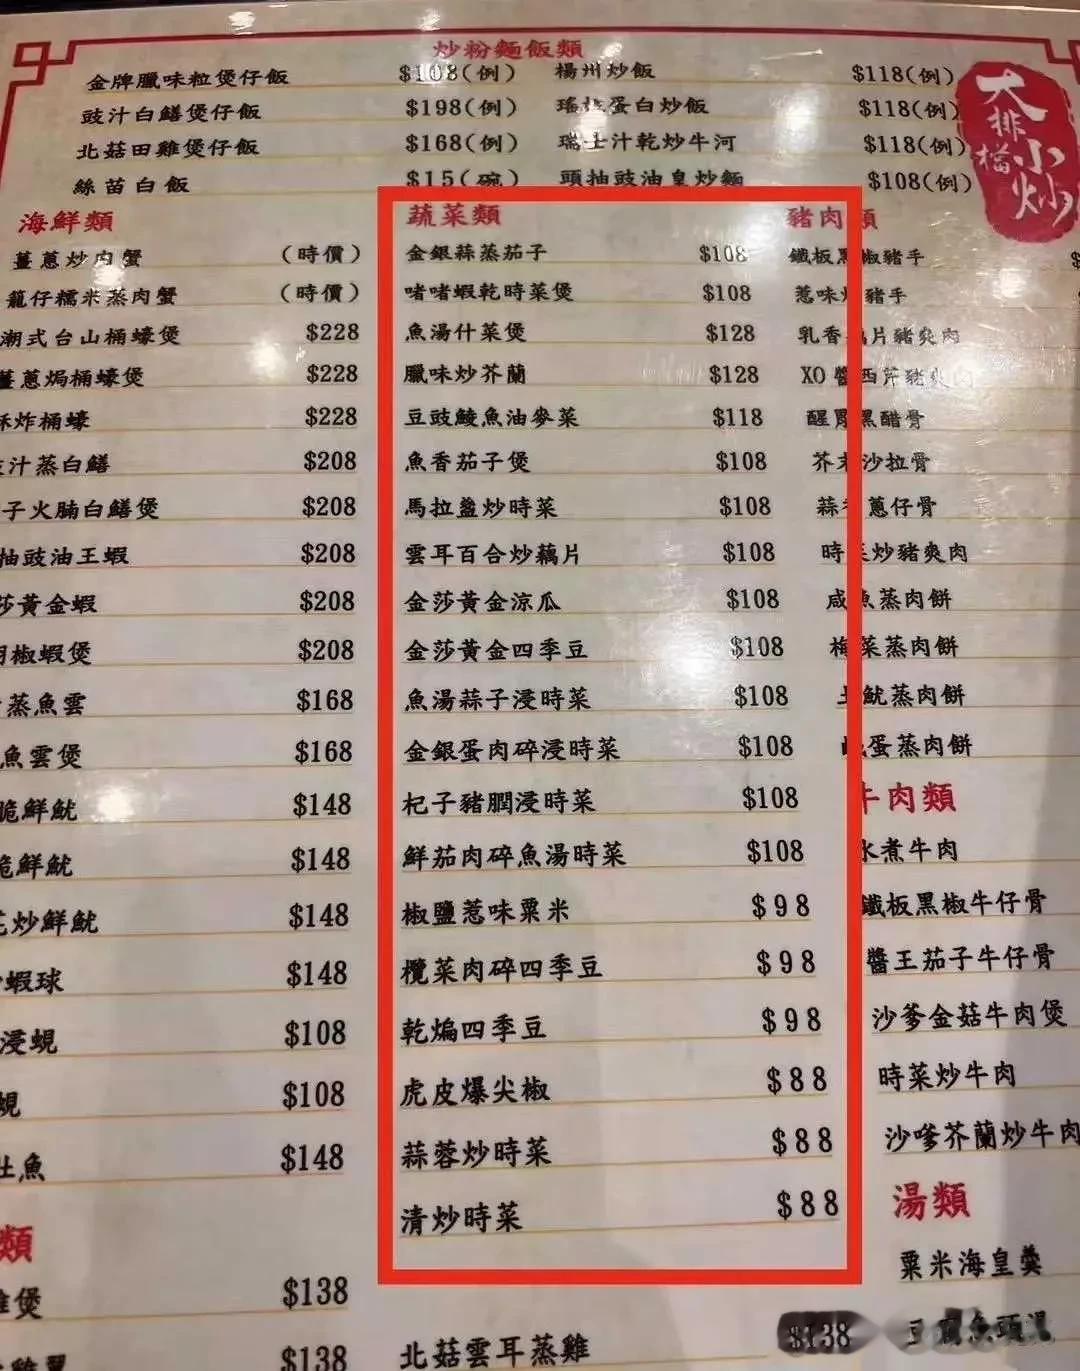 炒粉麵飯類
金牌臘味粒煲仔飯 $108(例) 楊州炒飯 $118(例)
豉汁白鱔煲仔飯 $198(例) 瑤柱蛋白炒飯 $118(例)
北菇田雞煲仔飯 $168(例) 瑞士汁乾炒牛河 $118(例)
絲苗白飯 $15(碗) 頭抽豉油皇炒麵 $108(例)
大排檔小炒
海鮮類
薑蔥炒肉蟹 (時價)
籠仔糯米蒸肉蟹 (時價)
潮式台山桶蠔煲 $228
薑蔥焗桶蠔煲 $228
炸桶蠔 $228
汁蒸白鱔 $208
子火腩白鱔煲 $208
抽豉油王蝦 $208
莎黃金蝦 $208
胡椒蝦煲 $208
蒸魚雲 $168
魚雲煲 $168
脆鮮魷 $148
脆鮮魷 $148
花炒鮮魷 $148
蝦球 $148
浸蜆 $108
蜆 $108
肚魚 $148
類
煲 $138
$138
蔬菜類
金銀蒜蒸茄子 $108
啫啫蝦乾時菜煲 $108
魚湯什菜煲 $128
臘味炒芥蘭 $128
豆豉鯪魚油麥菜 $118
魚香茄子煲 $108
馬拉盞炒時菜 $108
雲耳百合炒藕片 $108
金莎黃金涼瓜 $108
金莎黃金四季豆 $108
魚湯蒜子浸時菜 $108
金銀蛋肉碎浸時菜 $108
杞子豬膶浸時菜 $108
鮮茄肉碎魚湯時菜 $108
椒鹽惹味粟米 $98
欖菜肉碎四季豆 $98
乾煸四季豆 $98
虎皮爆尖椒 $88
蒜蓉炒時菜 $88
清炒時菜 $88
北菇雲耳蒸雞 $138
豬肉類
鐵板黑椒豬手
惹味炒豬手
乳香片豬爽肉
XO醬西芹豬爽肉
醒胃黑醋骨
芥末沙拉骨
蒜香蔥仔骨
時菜炒豬爽肉
咸魚蒸肉餅
梅菜蒸肉餅
土魷蒸肉餅
蛋蒸肉餅
牛肉類
水煮牛肉
鐵板黑椒牛仔骨
醬王茄子牛仔骨
沙爹金菇牛肉煲
時菜炒牛肉
沙嗲芥蘭炒牛肉
湯類
粟米海皇羹
豆腐魚頭湯